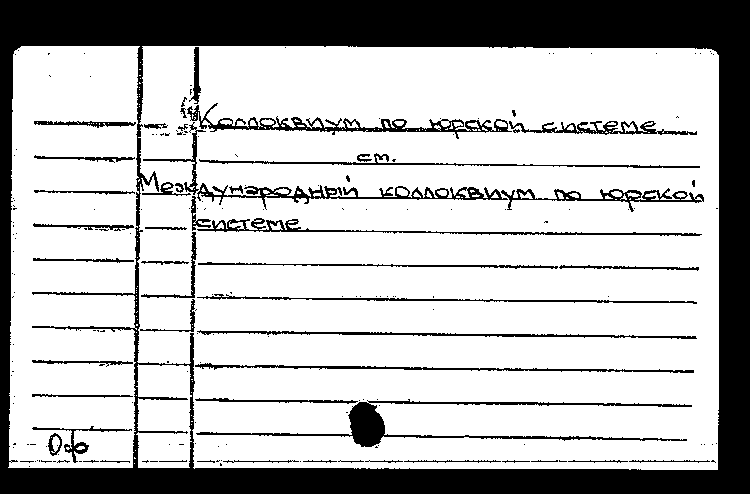 Коллоквиум по юрской системе.
см.
Международный коллоквиум по юрской
системе.
Оф